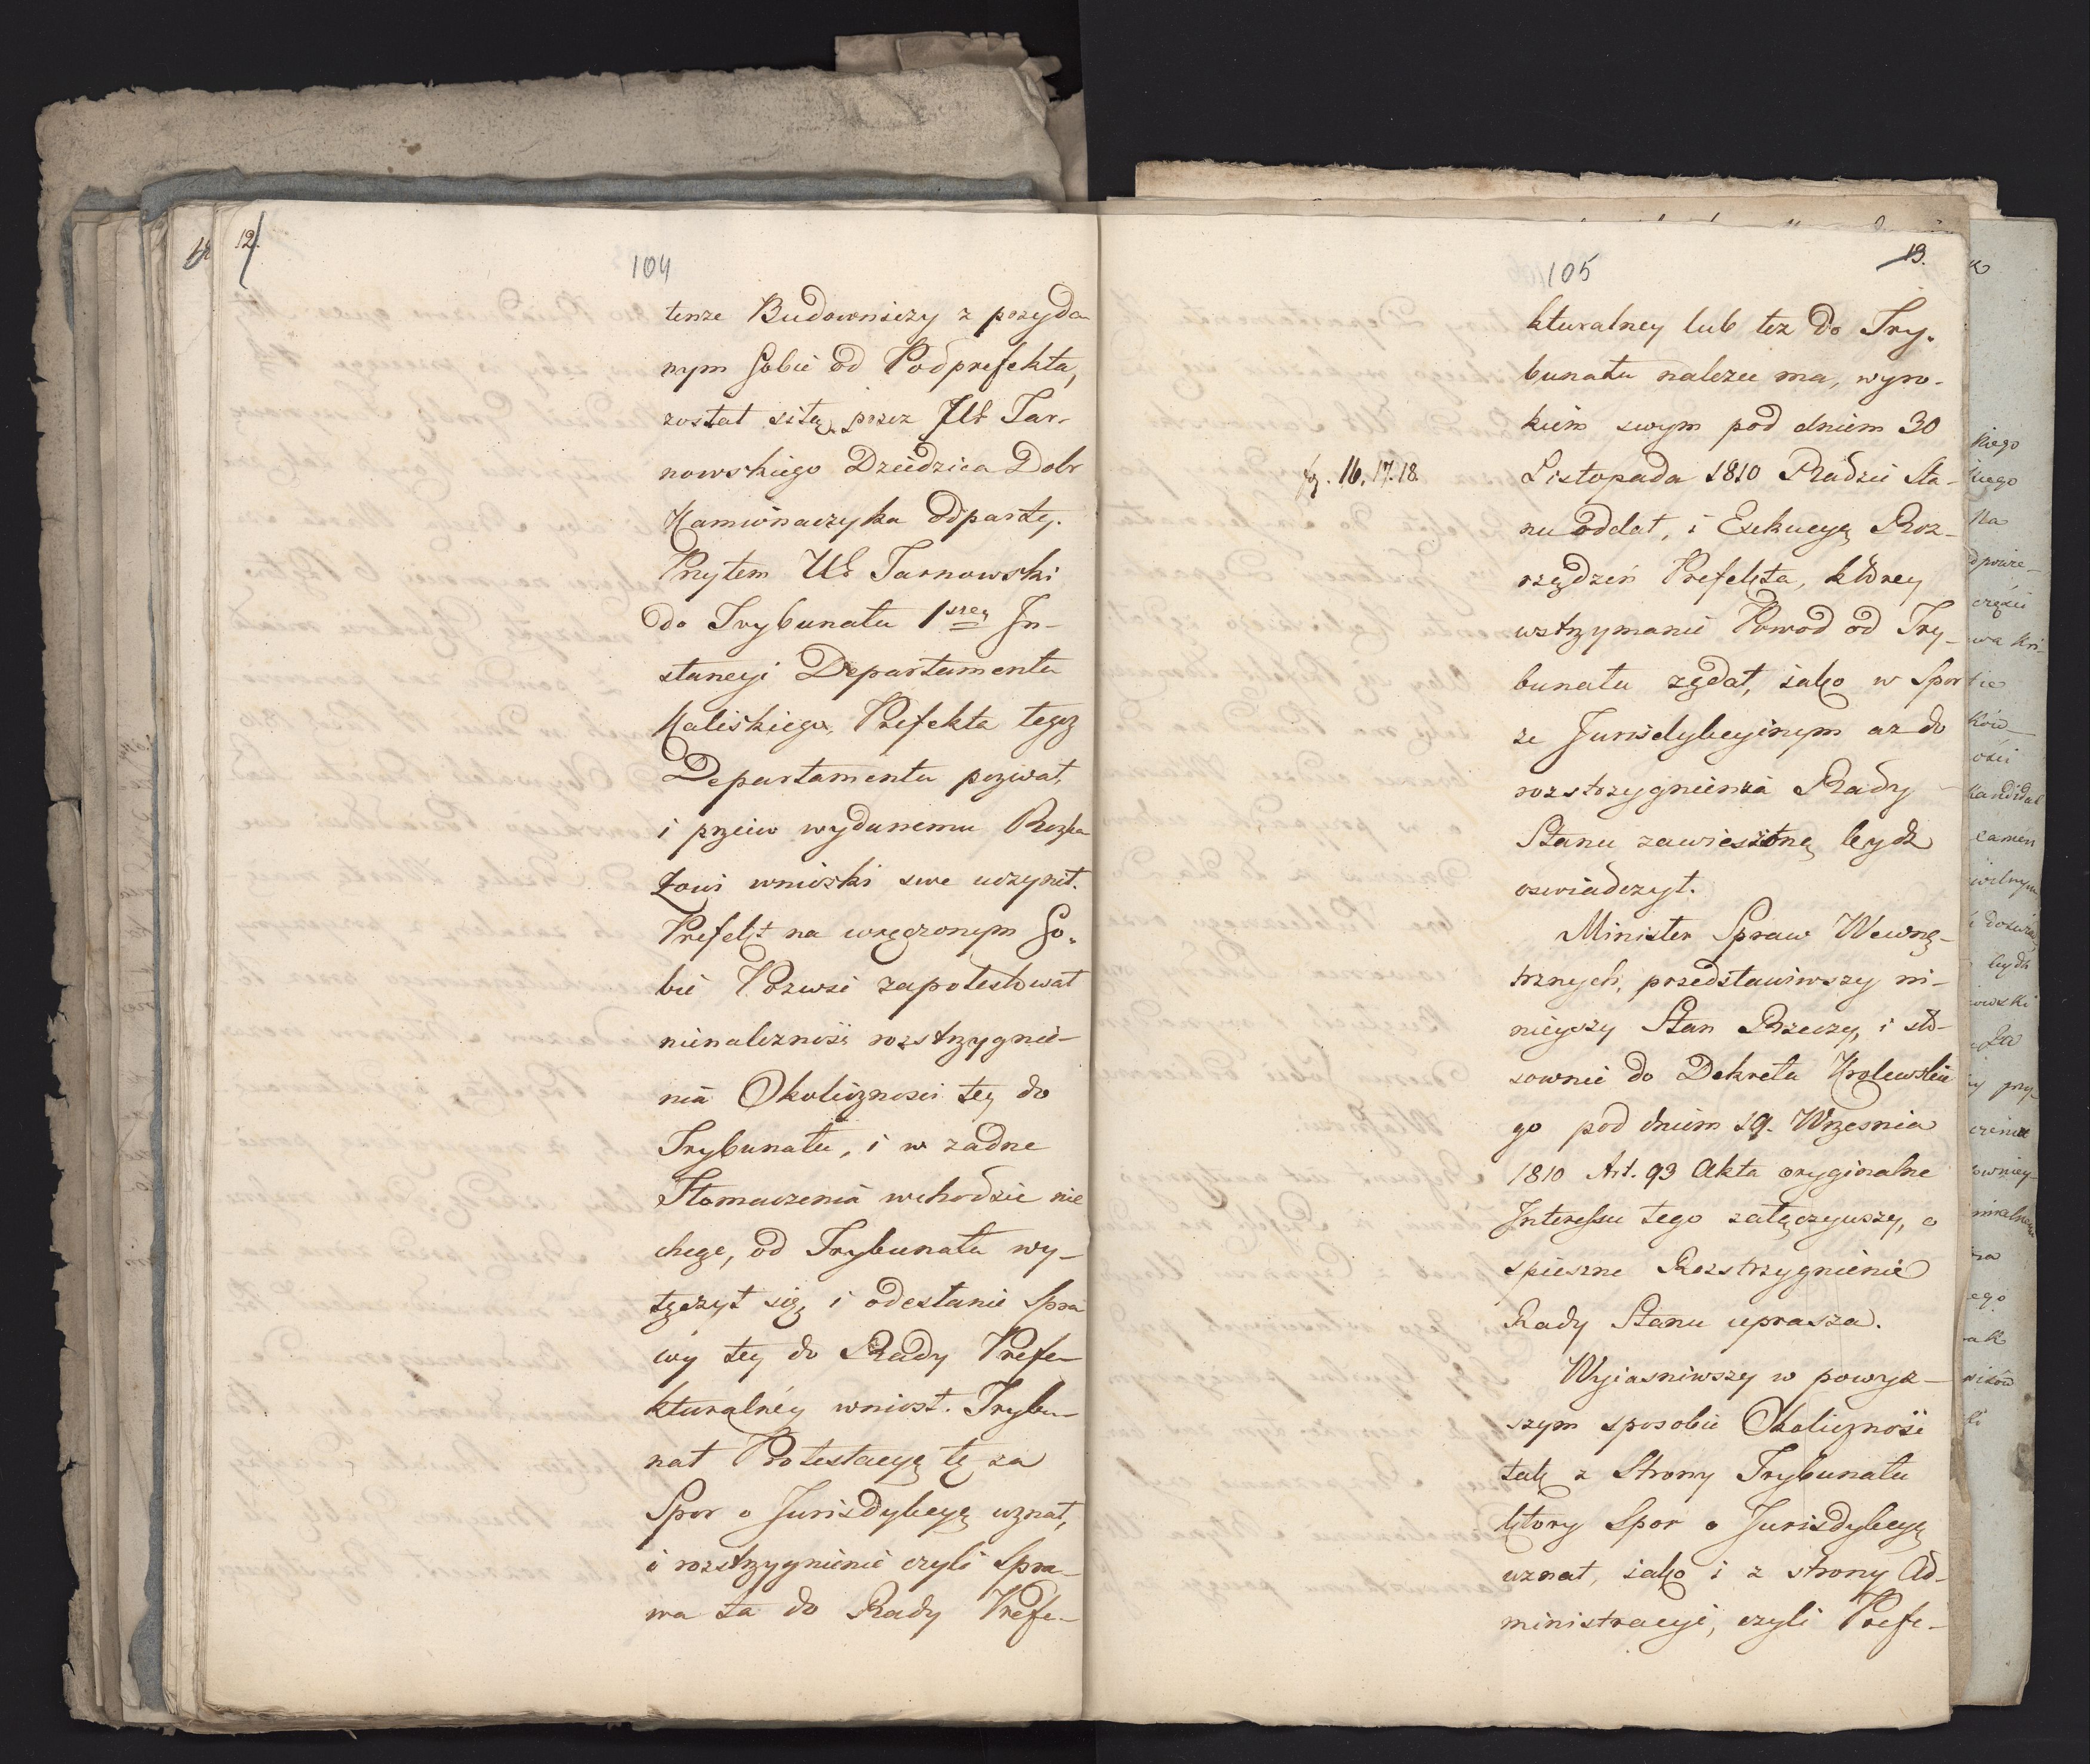 12.
104
tenże Budowniczy z przyda
nym Sobie od Podprefekta,
został siłą przez JW Tar-
nowskiego Dziedzica Dobr
Kamionaczyka odparty.
Przytem UR Tarnowski
do Trybunału 1szey In-
stancyi Departamentu
Kaliskiego, Prefekta tegoz
Departamentu pozwał,
i przeciw wydanemu Rozka
zowi wnioski swe uczynił.
Prefekt na wręczonym So-
bie Pozwie zaprotestował
nienależność rozstrzygnie-
nia Okoliczności tey do
Trybunału, i w żadne
Tłomaczenia wchodzić nie
chcąc, od Trybunału wy-
łączył się, i odesłanie Spra
wy tey do Rady Prefe-
kturalney wniosł. Trybu-
nał Protestacyą tę za
Spor o Jurisdykcyą uznał,
i rozstrzygnienie czyli Spra-
wa ta do Rady Prefe-
13.
105
kturalney lub też do Try-
bunału należeć ma, wyro-
kiem swym pod dniem 30
fg. 16. 17. 18. Listopada 1810 Radzie Sta-
nu oddał, i Exekucyą Roz-
rządzeń Prefekta, którey
wstrzymanie Powod od Try-
bunału żądał, iako w Spor
ze Jurisdykcyinym aż do
rozstrzygnienia Rady
Stanu zawieszoną bydź
oswiadczył.
Minister Spraw Wewnę-
trznych, przedstawiwszy ni-
nieyszy Stan Rzeczy, i sto-
sownie do Dekretu Krolewskie
go pod dniem 19. Wrzesnia
1810 Art. 93 Akta oryginalne
Interessu tego załączywszy, o
spieszne Rozstrzygnienie
Rady Stanu uprasza.
Wyiasniwszy w powyż-
szym sposobie Okoliczność
tak z Strony Trybunału
ktory Spor o Jurisdykcyą
uznał, iako i z strony Ad-
ministracyi, czyli Prefe-